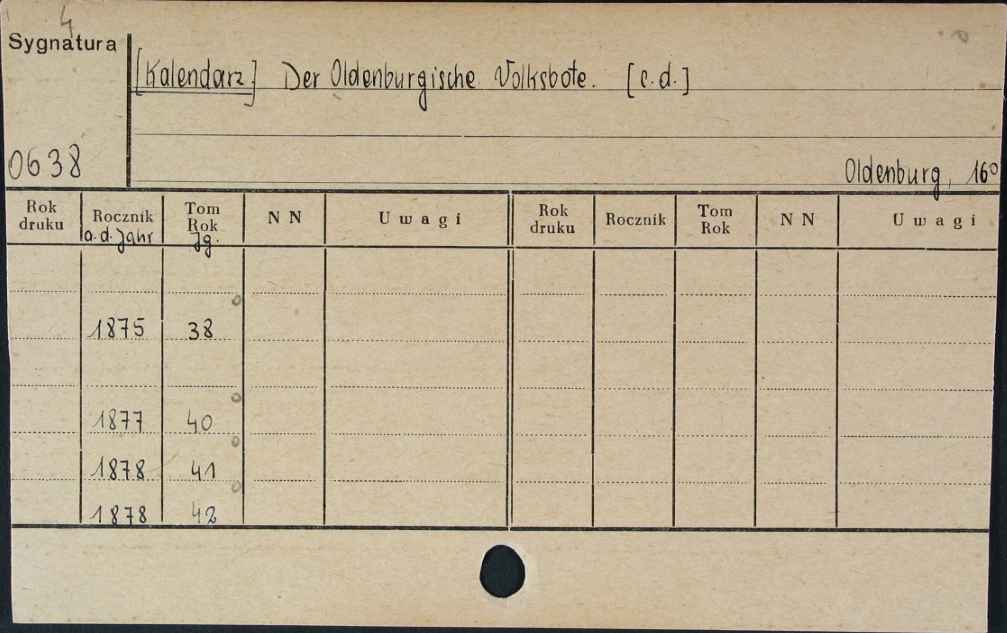 4
Sygnatura
[Kalendarz] Der Oldenburgische Volksbote. [c.d.]
0638
Oldenburg, 16°
Rok druku Rocznik a.d. Jahr Tom Rok Jg. NN Uwagi Rok druku Rocznik Tom Rok NN Uwagi
1875 38
1877 40
1878 41
1878 42